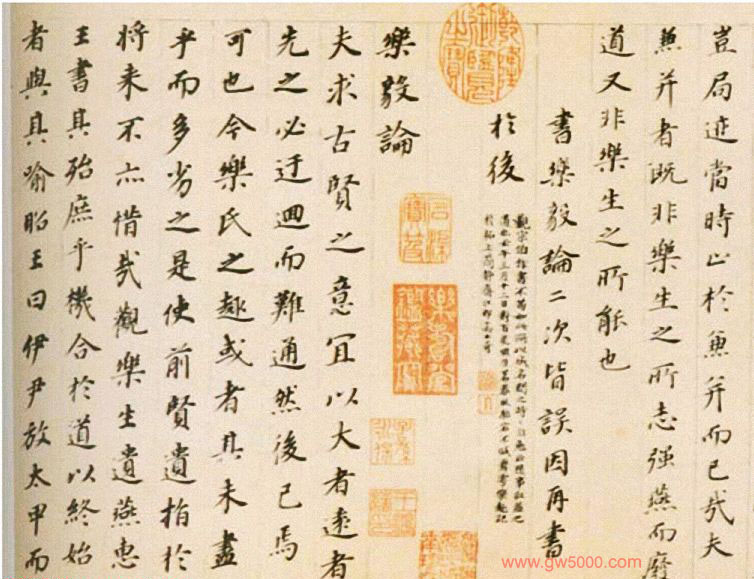 豈局迹當時止於兼并而已哉夫
兼并者既非樂生之所志強燕而廢
道又非樂生之所能也
書樂毅論二次皆誤因再書
於後
觀宗伯作書不苟如此所以成名
乾隆御覽之寶
樂毅論
夫求古賢之意宜以大者遠者
先之必迂迴而難通然後已焉
可也今樂氏之趣或者其未盡
乎而多劣之是使前賢遺指於
将来不亦惜哉觀樂生遺燕惠
王書其殆庶乎機合於道以終始
者與其喻昭王曰伊尹放太甲而
www.gw5000.com